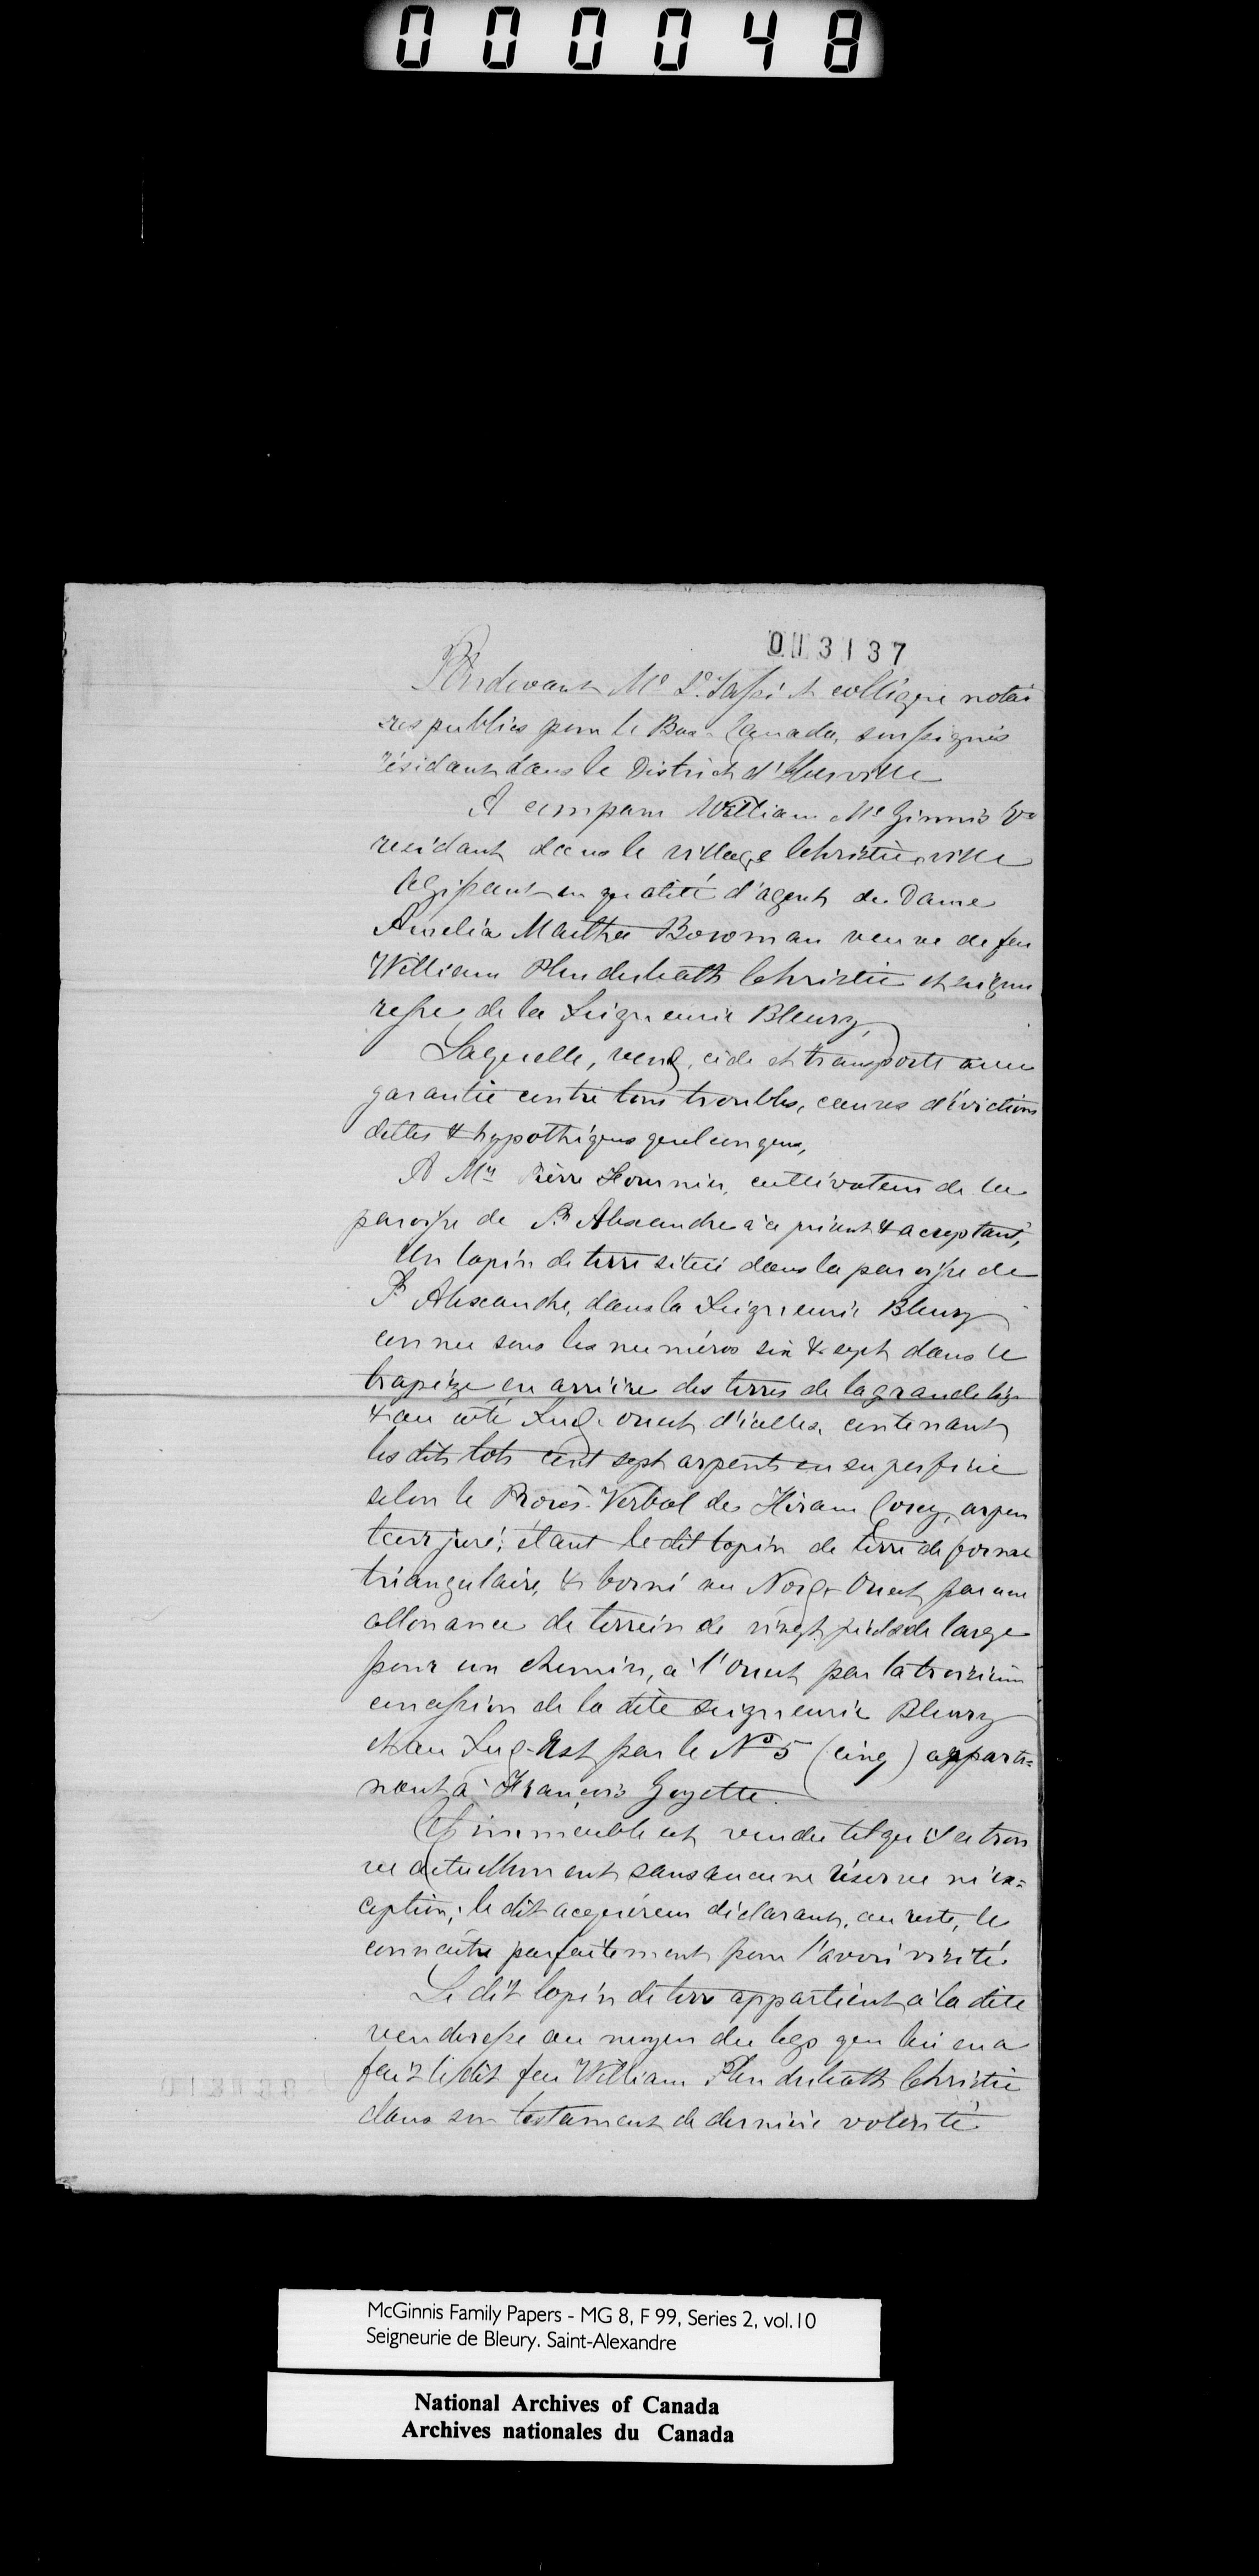 000048
013137
Pardevant Mc Ls. & collègue notai
res publics pour le Bas-Canada, soussignés
résidant dans le District d'Iberville
A comparu William McGinnis
residant dans le village Christieville
Agissant en qualité d'agent de Dame
Amelia Martha Bowman veuve de feu
William Plenderleath Christie et seigneu
resse de la Seigneurie Bleury,
Laquelle, vend, cède et transporte avec
garantie contre tous troubles, causes d'évictions
dettes & hypothèques quelconques,
A Mr Pierre cultivateur de la
paroisse de St Alexandre à ce présent & acceptant,
Un lopin de terre situé dans la paroisse de
St Alexandre, dans la Seigneurie Bleury
connu sous les numéros six & sept dans le
trapèze en arrière des terres de la grande lig
& au côté Sud-ouest d'icelles, contenant
les dits lots cent sept arpents en superficie
selon le Procès-Verbal de Hiram Corey, arpen
teur juré; étant le dit lopin de terre de forme
triangulaire, & borné au Nord-Ouest par une
allonance de terrein de vingt pieds de large
pour un chemin, à l'Ouest par la troisième
concession de la dite seigneurie Bleury
et au Sud-Est par le No 5 (cinq) apparte=
nant à François Goyette.
Cet immeuble est vendu tel qu'il se trou
ve actuellement sans aucune réserve ni ex=
ception; le dit acquéreur déclarant, au reste, le
connaître parfaitement pour l'avoir visité.
Le dit lopin de terre appartient à la dite
venderesse au moyen du legs que lui en a
fait le dit feu William Plenderleath Christie
dans son testament de dernière volonté
McGinnis Family Papers - MG 8, F 99, Series 2, vol.10
Seigneurie de Bleury. Saint-Alexandre
National Archives of Canada
Archives nationales du Canada